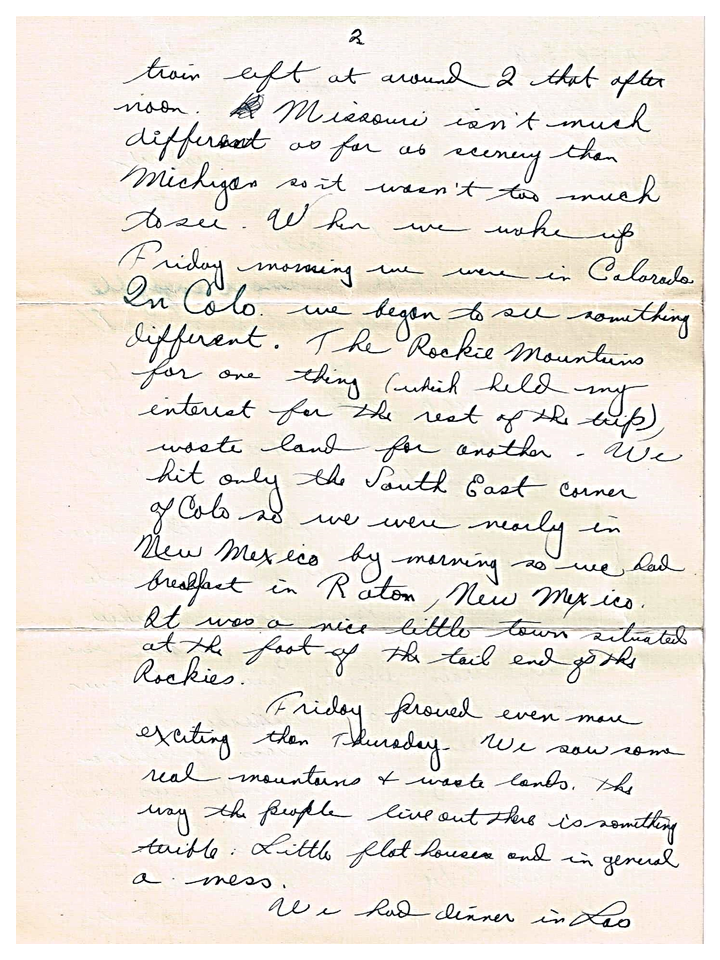 2
train left at around 2 that after
noon. Missouri isn't much
different as far as scenery than
Michigan so it wasn't too much
to see. When we woke up
Friday morning we were in Colorado
In Colo. we began to see something
different. The Rockie Mountains
for one thing (which held my
interest for the rest of the trip),
waste land for another. We
hit only the South East corner
of Colo so we were nearly in
New Mexico by morning so we had
breakfast in Raton, New Mexico.
It was a nice little town situated
at the foot of the tail end go the
Rockies.
Friday proved even more
exciting than Thursday. We saw some
real mountains + waste lands. The
way the people live out there is something
terible. Little flat houses and in general
a mess.
We had dinner in Las